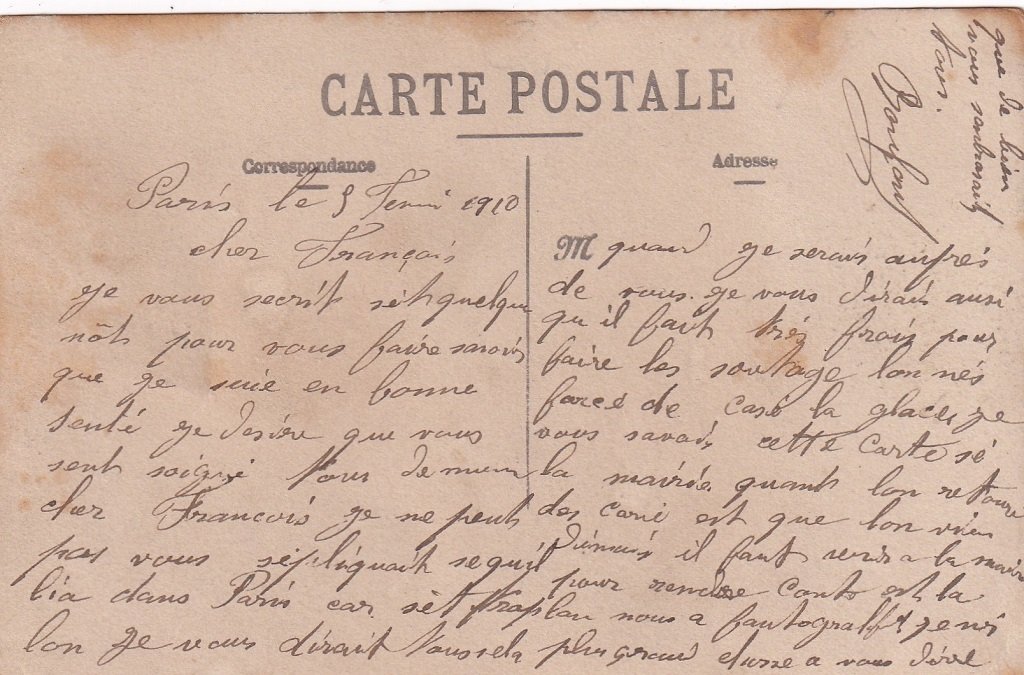 CARTE POSTALE
Correspondance
Adresse
Paris le 5 Fevrié 1910
cher Français
ge vous secrit sèt quelque
nôts pour vous faire savoir
que ge suie en bonne
senté ge desire que vous
sent soigné tous de mem
cher Francois ge ne peut
pas vous sépliquait sequil
lia dans Paris car sèt trap
lon ge vous dirait toussela
M quand ge serais auprés
de vous. ge vous dirais ausi
qu il faut trés frois pour
faire les soutage lon nés
forcé de casé la glace, ge
vous savais cette carte sé
la mairie quant lon retoure
des carié est que lon vien
il faut venir a la mairie
pour rendre conte est la
lon nous a fautograffi ge nri
plus grand chose a vous dire
que de bien
vous sanbrasait
tous.